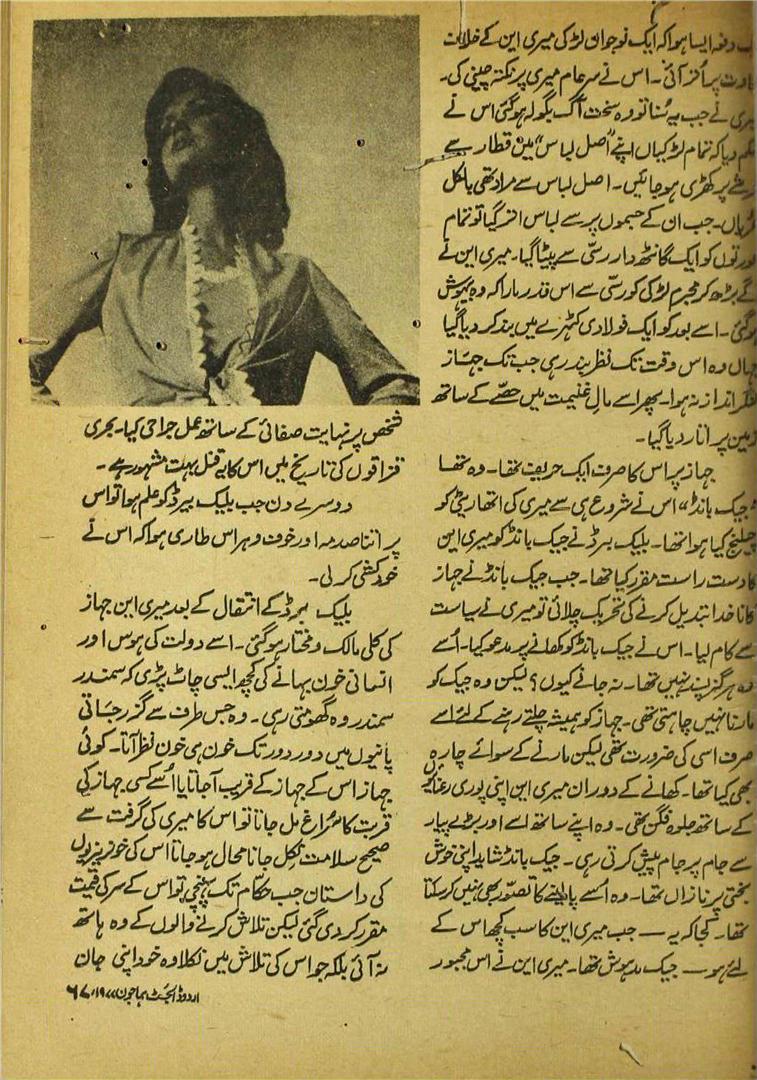 دفعہ ایسا ہوا کہ ایک نوجوان لڑکی میری این کے خلاف
بغاوت پر اُتر آئی۔ اس نے سرِعام میری پر نکتہ چینی کی۔
میری نے جب یہ سُنا تو وہ سخت آگ بگولہ ہوگئی اس نے
حکم دیا کہ تمام لڑکیاں اپنے "اصل لباس" میں قطار سے
عرشے پر کھڑی ہو جائیں۔ اصل لباس سے مراد تھی بالکل
عُریاں۔ جب ان کے جسموں پر سے لباس اتر گیا تو تمام
عورتوں کو ایک گانٹھ دار رسّی سے پیٹا گیا۔ میری این نے
آگے بڑھ کر مجرم لڑکی کو رسّی سے اس قدر مارا کہ وہ بیہوش
ہوگئی۔ اسے بعد کو ایک فولادی کٹہرے میں بند کر دیا گیا
جہاں وہ اس وقت تک نظر بند رہی جب تک جہاز
لنگر انداز نہ ہوا۔ پھر اسے مالِ غنیمت میں حصّے کے ساتھ
زمین پر اتار دیا گیا۔
جہاز پر اس کا صرف ایک حریف تھا۔ وہ تھا
"جیک بانڈ" اس نے شروع ہی سے میری کی اتھاریٹی کو
چیلنج کیا ہوا تھا۔ بلیک برڈ نے جیک بانڈ کو میری این
کا دست راست مقرر کیا تھا۔ جب جیک بانڈ نے جہاز
کا ناخدا تبدیل کرنے کی تحریک چلائی تو میری نے سیاست
سے کام لیا۔ اس نے جیک بانڈ کو کھانے پر مدعو کیا۔ اُسے
وہ ہرگز پسند نہیں تھا۔ نہ جانے کیوں؟ لیکن وہ جیک کو
مارنا نہیں چاہتی تھی۔ جہاز کو ہمیشہ چلتے رہنے کے لئے اسے
صرف اسی کی ضرورت تھی لیکن مارنے کے سوائے چارہ
بھی کیا تھا۔ کھانے کے دوران میری این اپنی پوری رعنائیوں
کے ساتھ جلوہ فگن تھی۔ وہ اپنے ساتھ اسے اور بڑے پیار
سے جام پر جام پیش کرتی رہی۔ جیک بانڈ شاید اپنی خوش
بختی پر نازاں تھا۔ وہ اُسے پا لینے کا تصوّر بھی نہیں کر سکتا
تھا۔ کجا کہ یہ — جب میری این کا سب کچھ اس کے
لئے ہو — جیک مدہوش تھا۔ میری این نے اس مجبور
شخص پر نہایت صفائی کے ساتھ عمل جراحی کیا۔ بحری
قزاقوں کی تاریخ میں اس کا یہ قتل بہت مشہور ہے۔
دوسرے دن جب بلیک بیرڈ کو علم ہوا تو اس
پر اتنا صدمہ اور خوف و ہراس طاری ہوا کہ اس نے
خودکشی کر لی۔
بلیک برڈ کے انتقال کے بعد میری این جہاز
کی کلی مالک و مختار ہوگئی۔ اسے دولت کی ہوس اور
انسانی خون بہانے کی کچھ ایسی چاٹ پڑی کہ سمندر
سمندر وہ گھومتی رہی۔ وہ جس طرف سے گزر جاتی
پانیوں میں دور دور تک خون ہی خون نظر آتا۔ کوئی
جہاز اس کے جہاز کے قریب آجاتا یا اُسے کسی جہاز کی
قربت کا سُراغ مل جاتا تو اس کا میری کی گرفت سے
صحیح سلامت نکل جانا محال ہو جاتا اس کی خونریزیوں
کی داستان جب حکّام تک پہنچی تو اس کے سر کی قیمت
مقرر کر دی گئی لیکن تلاش کرنے والوں کے وہ ہاتھ
نہ آئی بلکہ جو اس کی تلاش میں نکلا وہ خود اپنی جان
اردو ڈائجسٹ ہما جون ۱۹۷۷ء / ۶۷